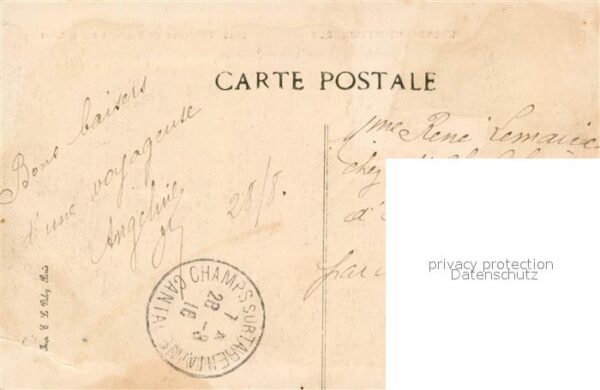 CARTE POSTALE
Bons baisers
d'une voyageuse
Angeline
28/8.
Mme René Lemarié
chez
d'
par
privacy protection
Datenschutz
CHAMPS SUR TARENTAINE
7 *
28 -8
16
CANTAL